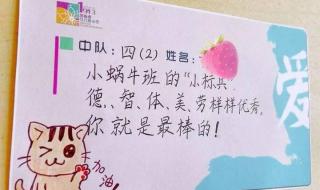 中队：四(2) 姓名：
小蜗牛班的“小标兵”
德、智、体、美、劳样样优秀，
你就是最棒的！
加油！
爱